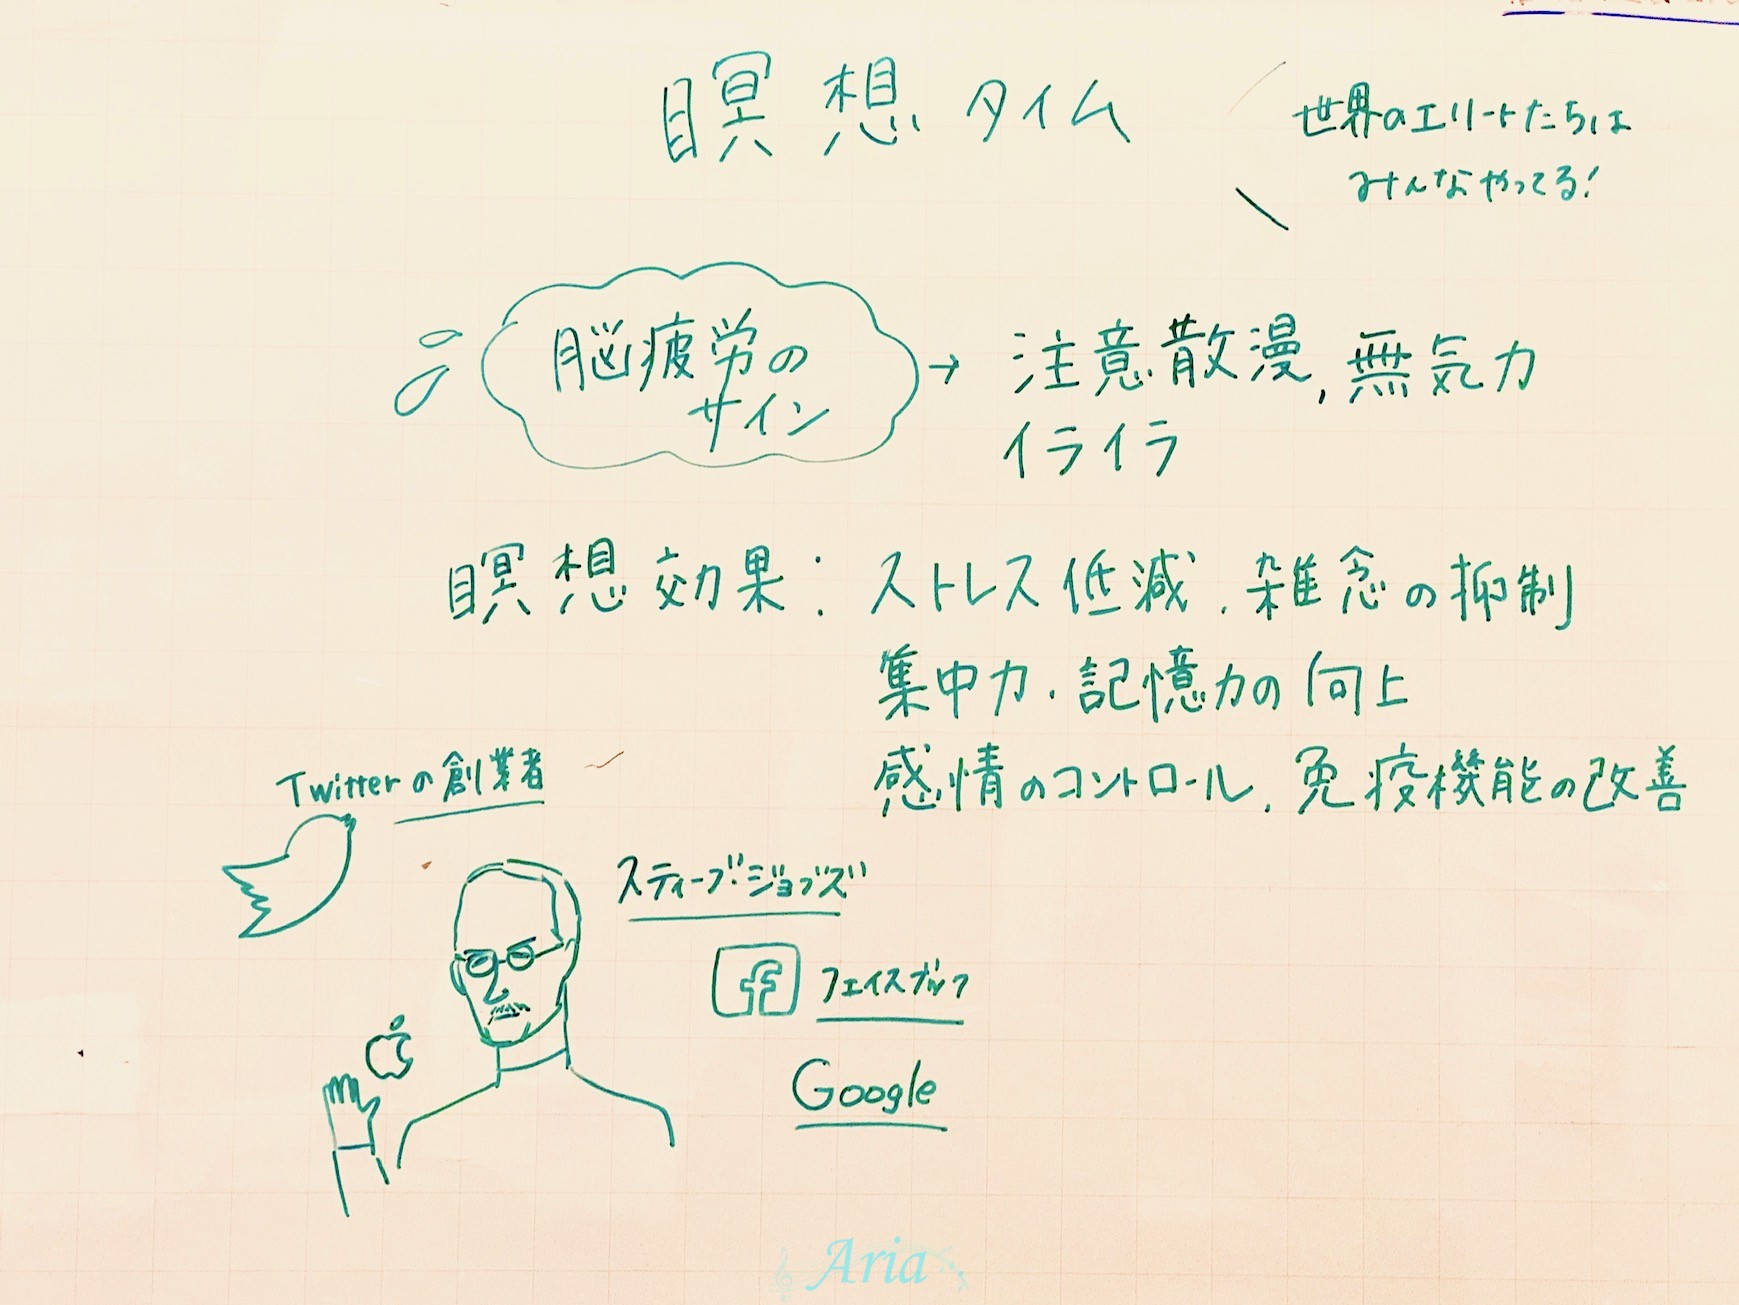 瞑想タイム
世界のエリートたちは
みんなやってる!
脳疲労の
サイン
→ 注意散漫, 無気力
イライラ
瞑想効果: ストレス低減. 雑念の抑制
集中力・記憶力の向上
感情のコントロール. 免疫機能の改善
Twitterの創業者
スティーブ・ジョブズ
f フェイスブック
Google
Aria